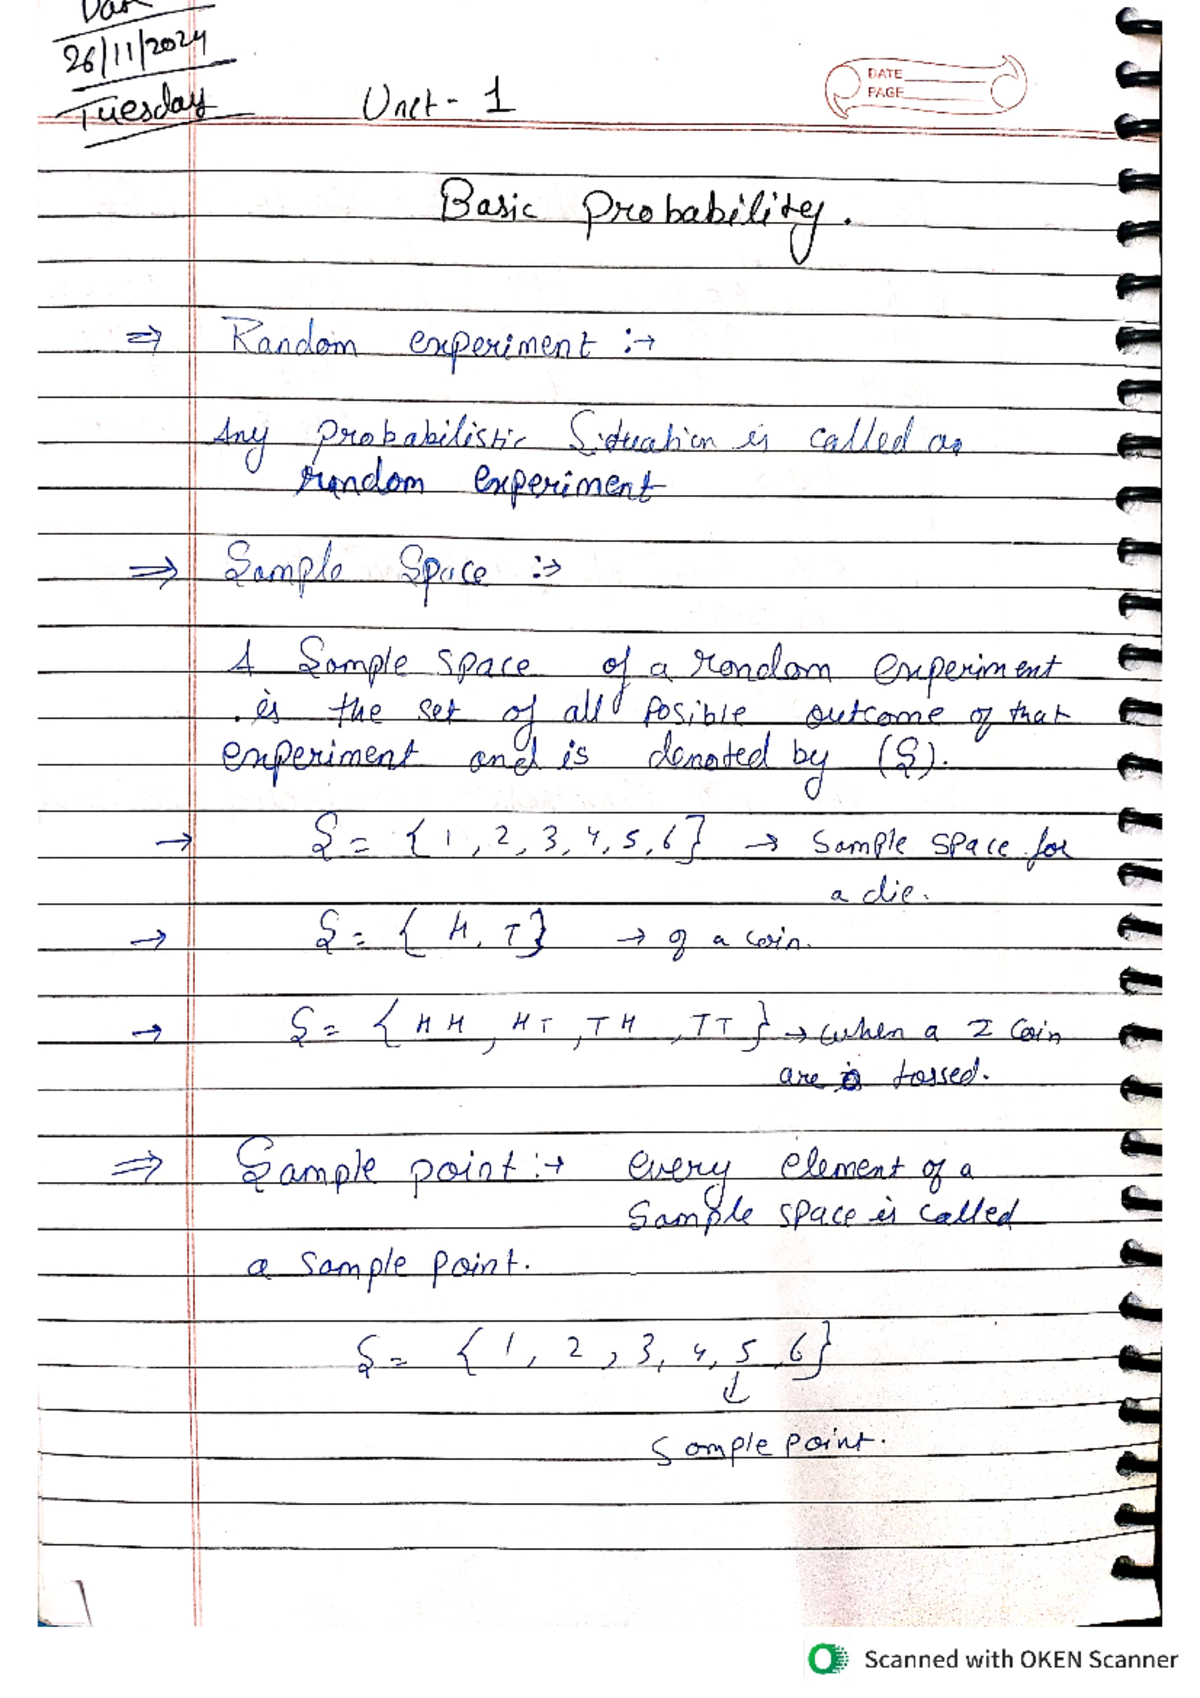 26/11/2024
Tuesday
Unit - 1
DATE
PAGE
Basic Probability.
⇒ Random experiment :→
Any probabilistic Situation is called as
random experiment
⇒ Sample Space :→
A Sample space of a random experiment
is the set of all posible outcome of that
experiment and is denoted by (S).
→ S = { 1, 2, 3, 4, 5, 6} → Sample space for
a die.
→ S = { H, T} → of a coin.
→ S = { HH, HT, TH, TT } → when a 2 Coin
are tossed.
⇒ Sample point :→ every element of a
Sample space is called
a sample point.
S = { 1, 2, 3, 4, 5, 6}
↓
Sample point.
Scanned with OKEN Scanner